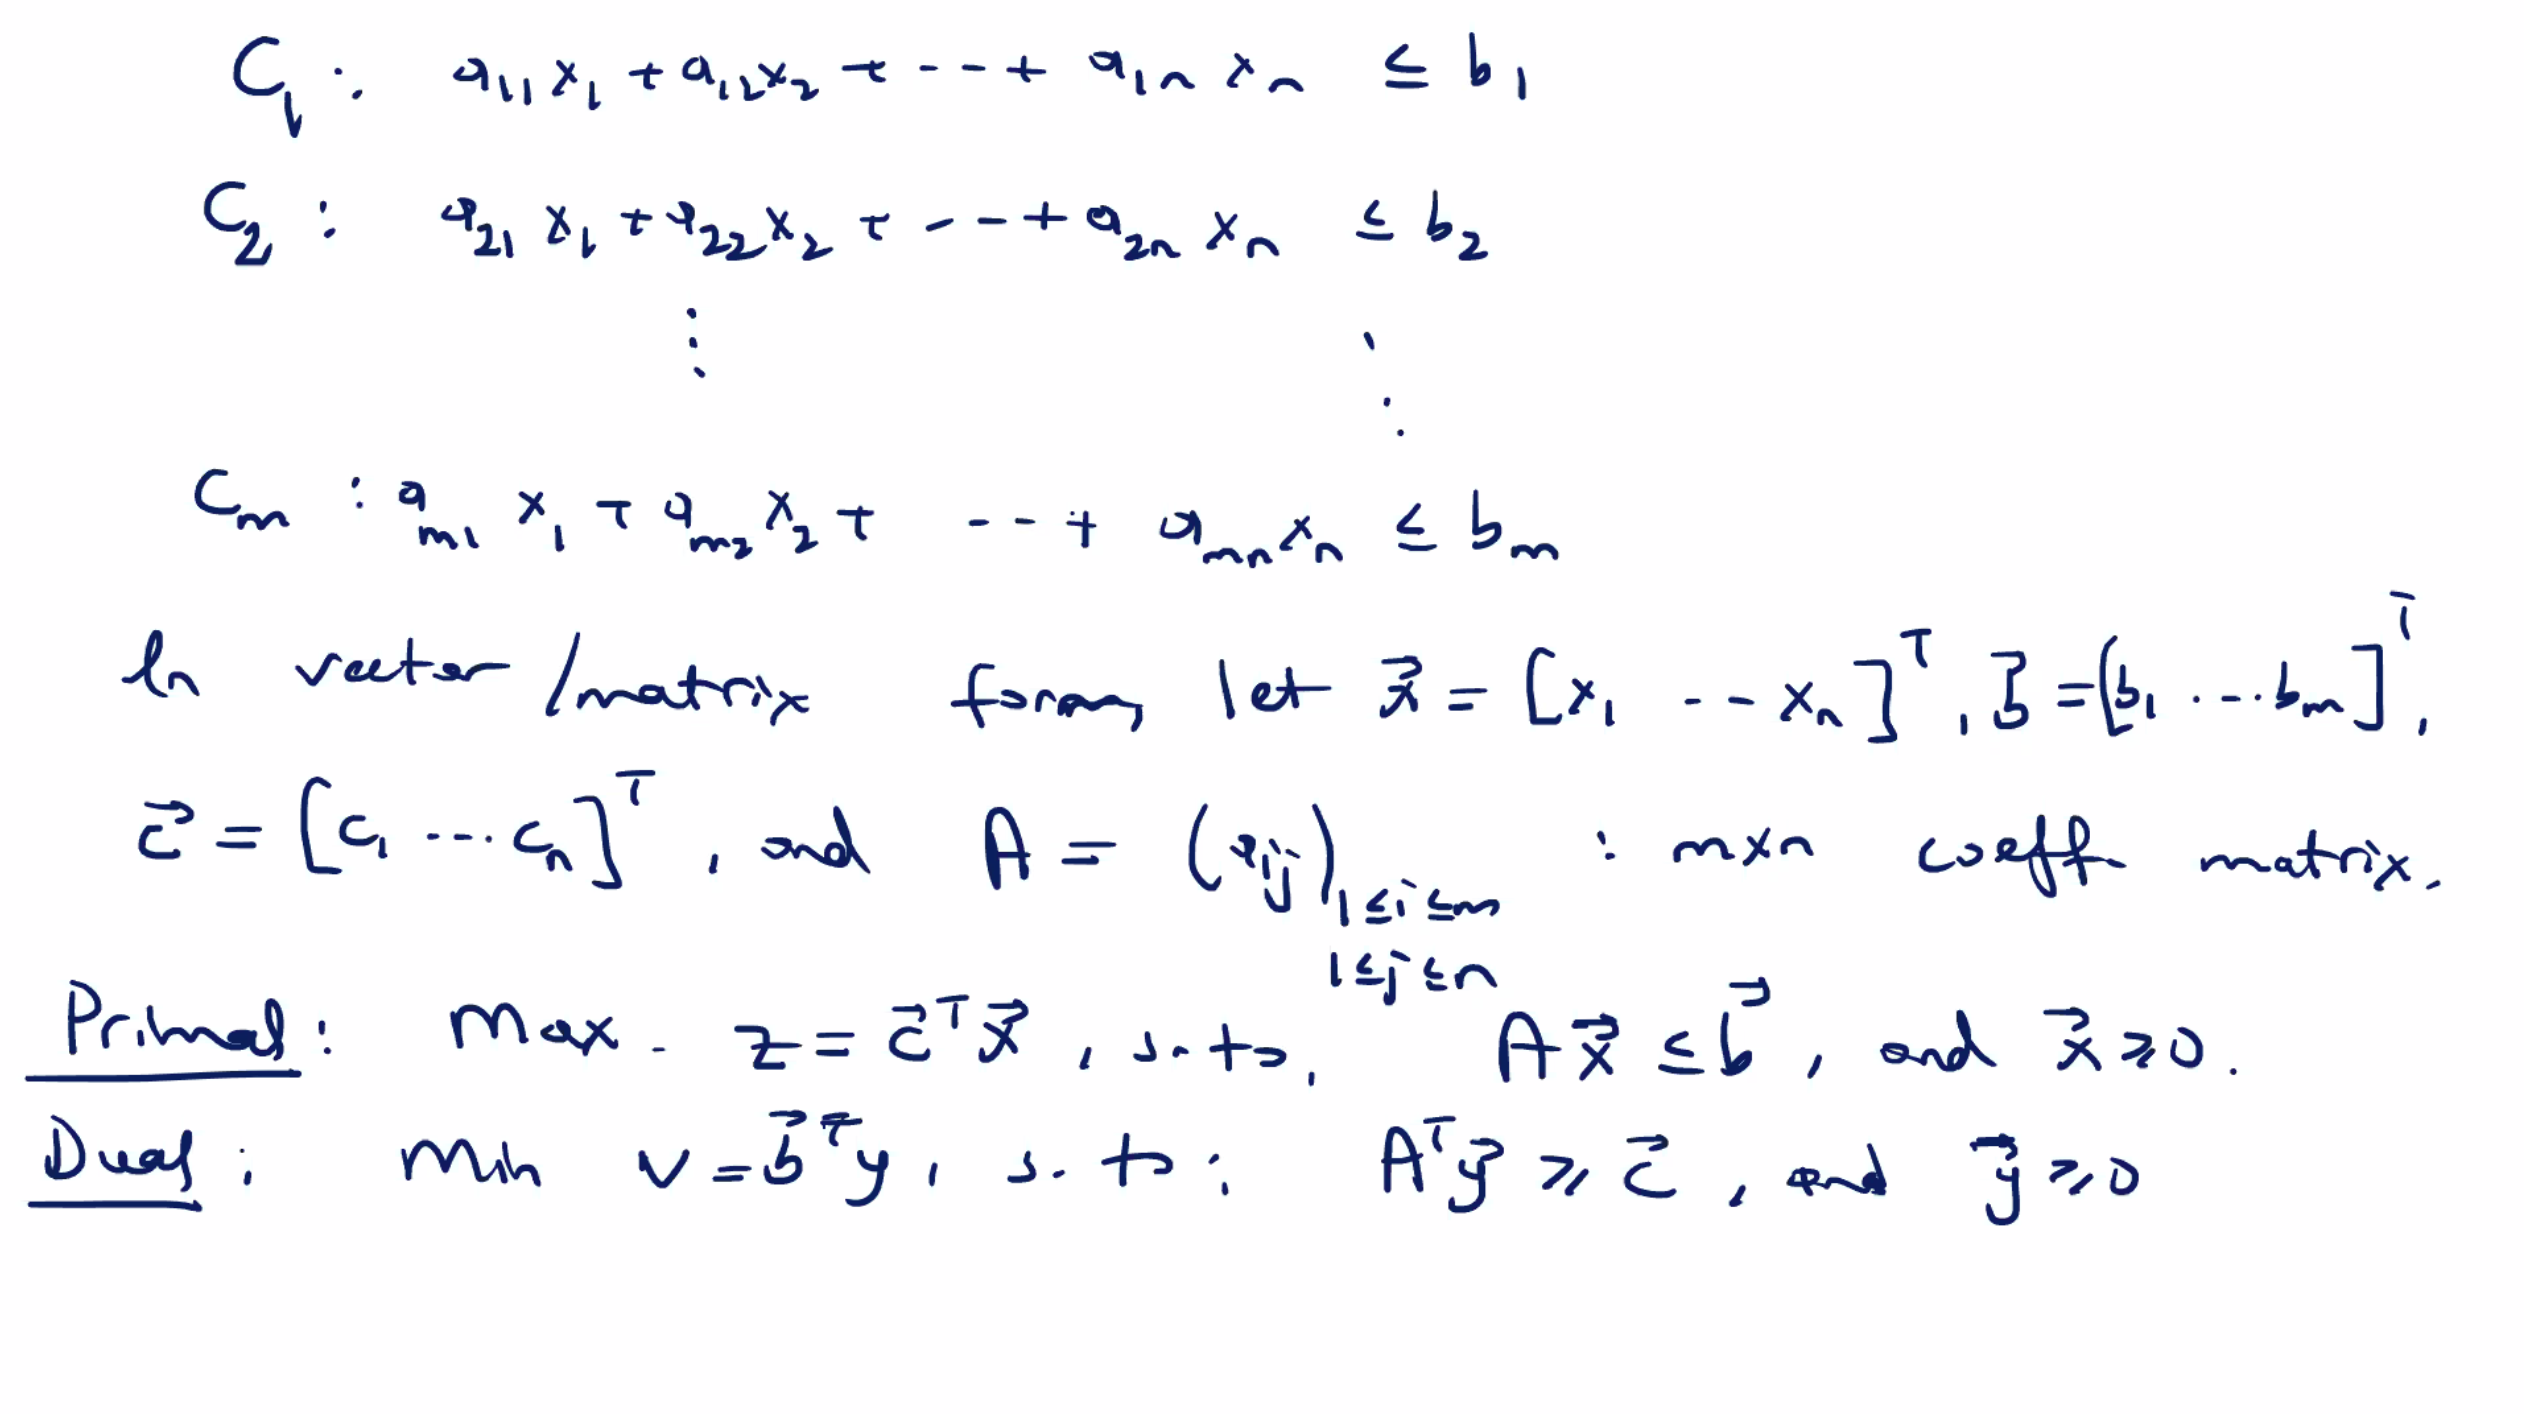 C₁ : a₁₁x₁ + a₁₂x₂ + --- + a₁ₙ xₙ ≤ b₁
C₂ : a₂₁ x₁ + a₂₂x₂ + --- + a₂ₙ xₙ ≤ b₂
⋮ ⋱
Cₘ : aₘ₁ x₁ + aₘ₂ x₂ + --- + aₘₙxₙ ≤ bₘ
In vector/matrix form, let x⃗ = [x₁ --- xₙ]ᵀ, b⃗ = [b₁ ... bₘ]ᵀ,
c⃗ = [c₁ ... cₙ]ᵀ, and A = (aᵢⱼ) 1≤i≤m : m×n coeff. matrix.
1≤j≤n
Primal: Max. z = c⃗ᵀx⃗, s.to, Ax⃗ ≤ b⃗, and x⃗ ≥ 0.
Dual: Min v = b⃗ᵀy, s.to: Aᵀy⃗ ≥ c⃗, and y⃗ ≥ 0